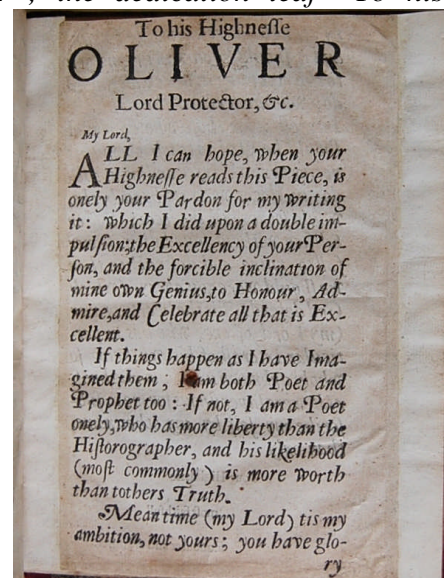 the dedication leaf
To his Highneſſe
OLIVER
Lord Protector, &c.
My Lord,
ALL I can hope, when your
Highneſſe reads this Piece, is
onely your Pardon for my writing
it: which I did upon a double im-
pulſion;the Excellency of your Per-
ſon, and the forcible inclination of
mine own Genius,to Honour, Ad-
mire,and Celebrate all that is Ex-
cellent.
If things happen as I have Ima-
gined them; I am both Poet and
Prophet too: If not, I am a Poet
onely,who has more liberty than the
Hiſtorographer, and his likelihood
(moſt commonly) is more worth
than tothers Truth.
Mean time (my Lord) tis my
ambition, not yours; you have glo-
ry